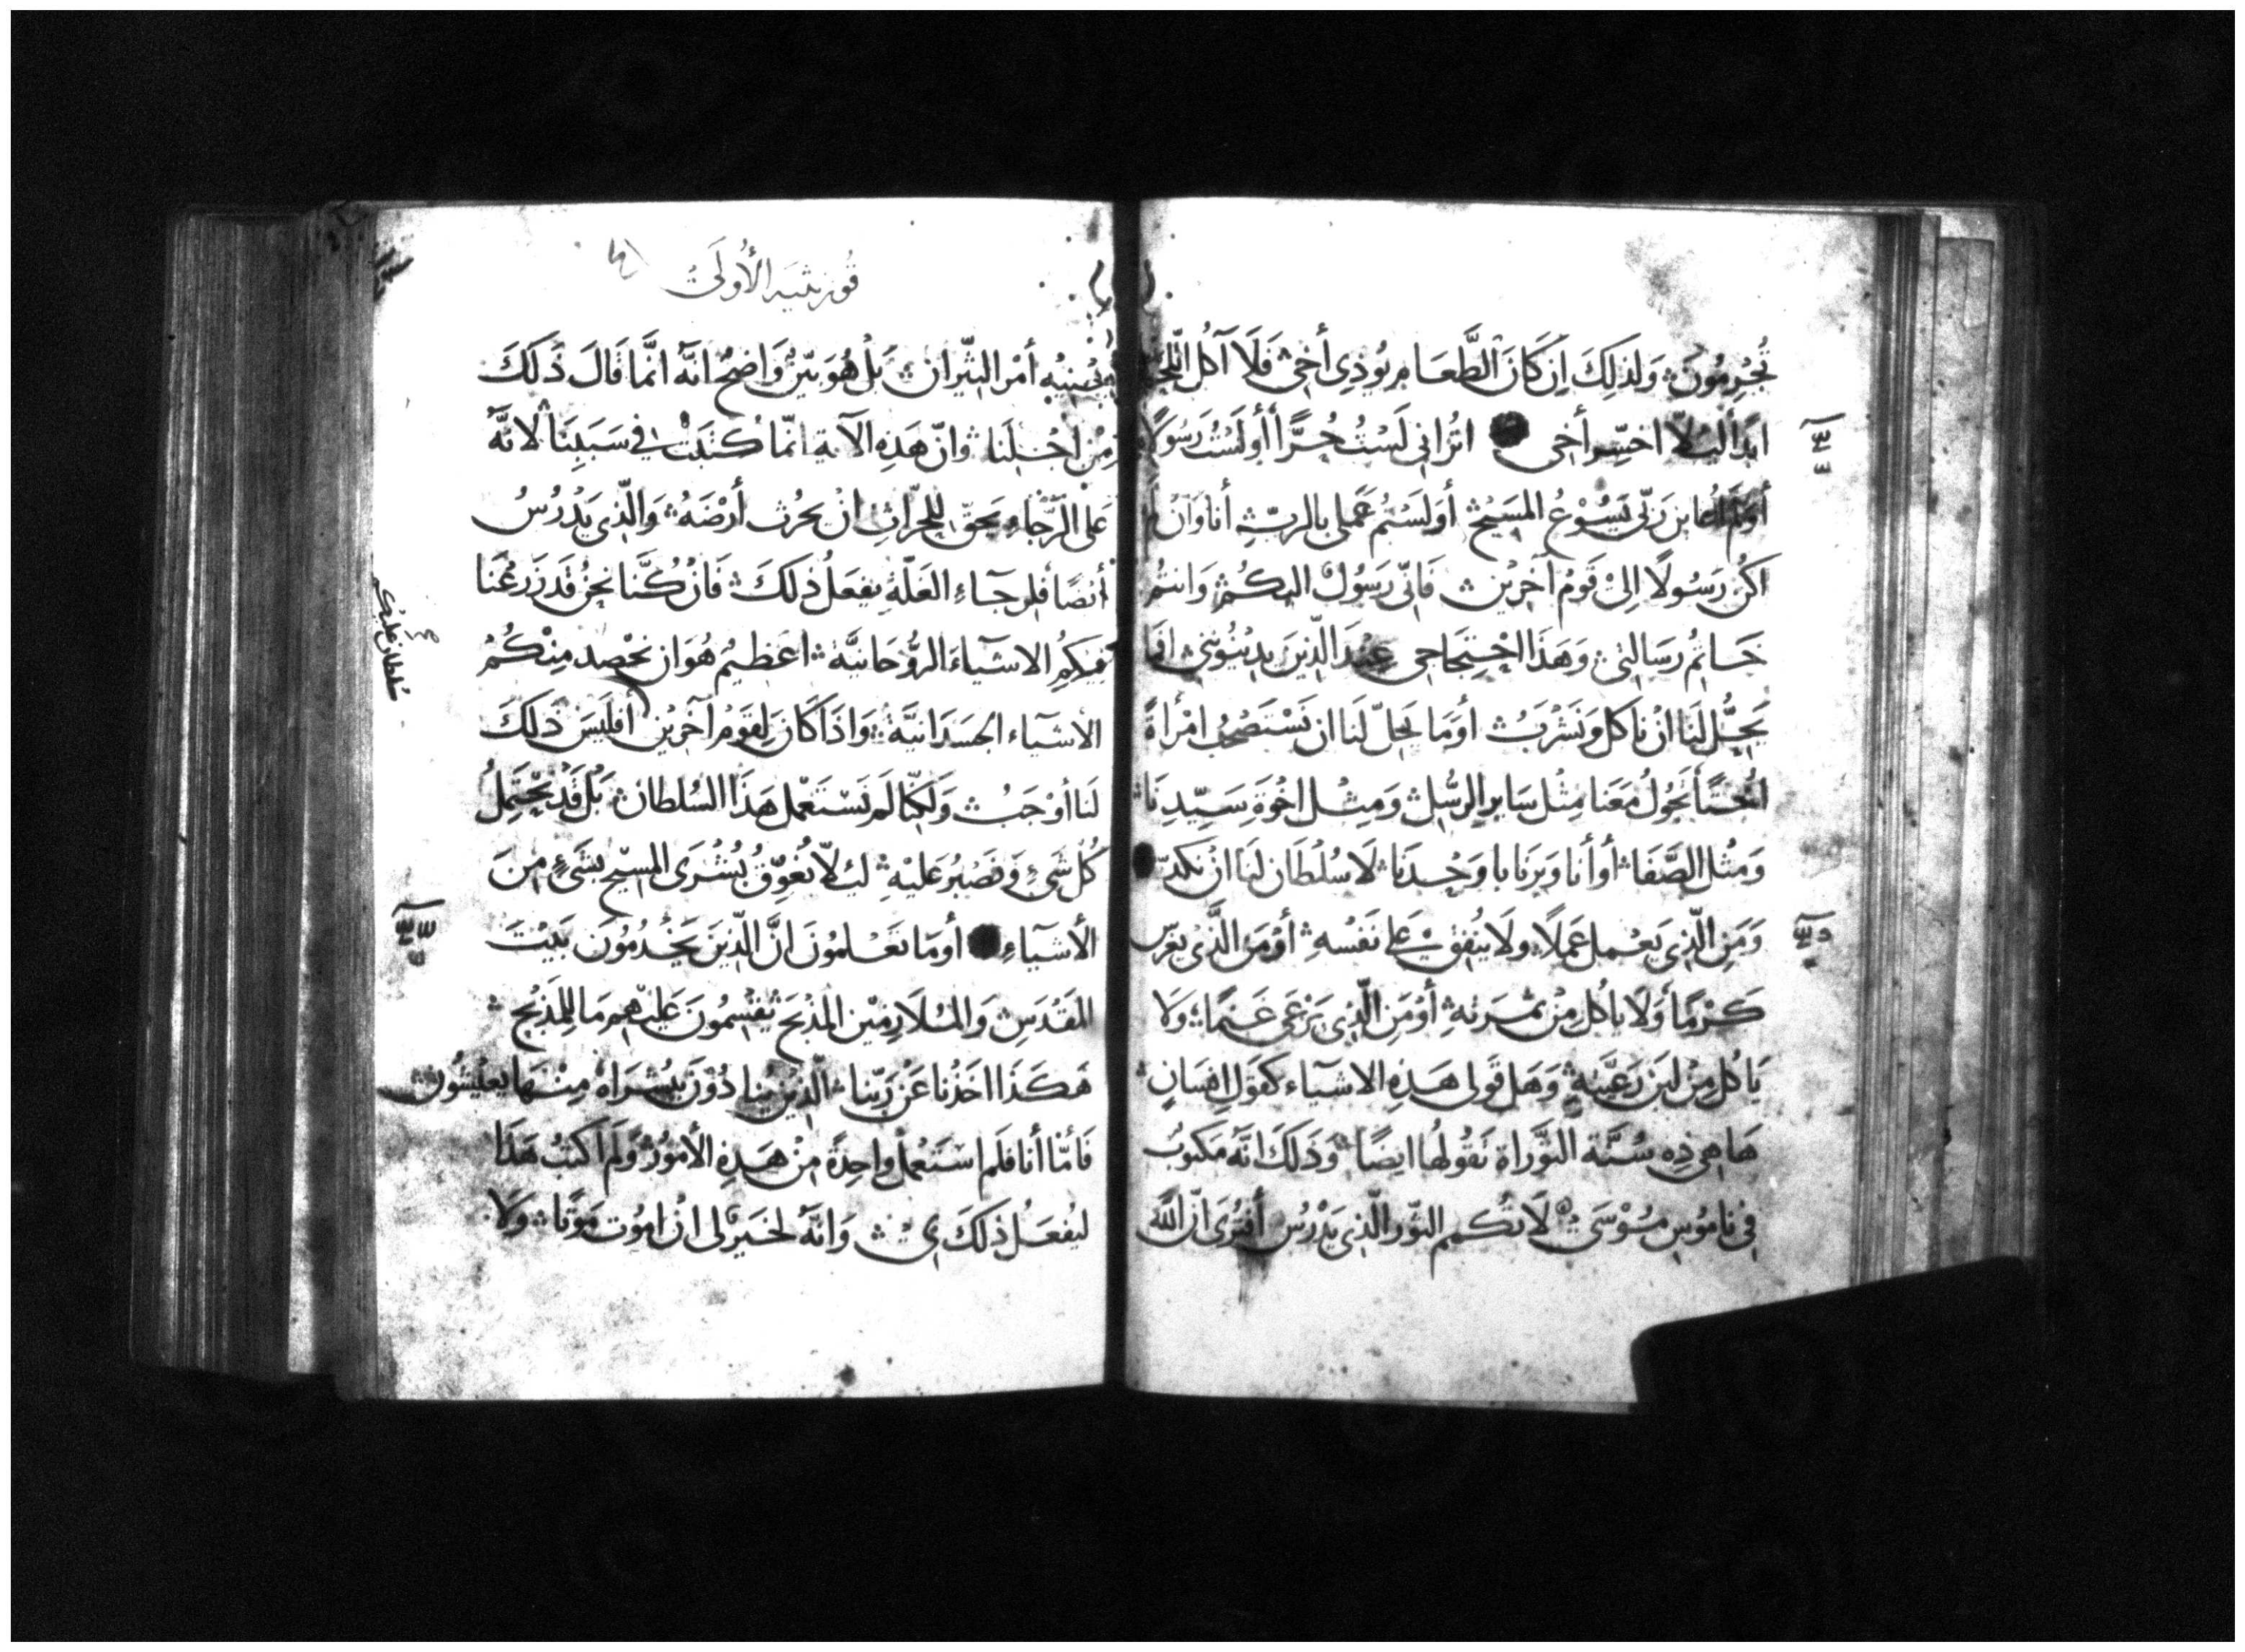 تُجْرِمُونَ وَلذَلِكَ اِن كَانَ الطَّعَامِ يُوذِى أَخِى فَلَا آكل اللحم
ابَدا لَيْلاّ اخسّر أخى اتُرانى لَسْتُ حُرًّا أَأُولَسْتُ رَسُولًا
أَوَلَمْ اُعاين رَبّى يَسُوْعُ المَسِيْح أوَلَسْتُم عَمَلى بالربّ أنا وَان لَم
اكُن رَسُولًا اِلىْ قَوْم آخرِيْن فَانّى رَسُولٌ اليكُمْ وَانتُم
خَاتِمُ رسَالتِى وَهَذَا احْتِجَاجى عِنْدَ الَّذِينَ يدِيْنُوننِى افَما
يَحِلُّ لنَا انْ ناكل وَنَشْرَبُ أوَمَا يَحِلّ لَنَا ان نَسْتَصْحِبُ امْرأةً
اُخْتًا تَجُولُ مَعَنا مِثْل سَاير الرسُل وَمِثْل اخْوَةِ سَيِّدِنَا
وَمثْل الصَّفَا أو أنا وَبَرنَابا وَحْدَنا لَا سُلْطَان لنَا انْ نكدّ
وَمَنِ الَّذِى يَعْمل عَمَلًا ولَا يُنْفِق عَلى نَفْسهِ أوْ مَن الَّذى يغرس
كَرْمًا وَلَا ياكُل مِنْ ثمَرَتهِ أوْ مَنِ الَّذِى يَرْعَى غَنمًا وَلَا
يَاكُل مِنْ لبَن رَعيَّتِهِ وَهَل قَولى هَذِهِ الاشيآء كقَولِ اِنسَانٍ
هَاهِى ذِه سُنَّة التَّوراة تَقُولُها ايضًا وَذَلَكَ انَّهُ مَكتوبٌ
فى نامُوسِ مُوْسَى لَا تكُمم الثور الَّذِى يَدْرُس أفتُرى انّ اللَّهَ
قُورنثيَه الأُولَى
يُعْنِيْهِ أمْر الثِّيرَان بَلْ هُوَ بيّنٌ وَاضحٌ انَّهُ انَّمَا قَالَ ذَلَكَ
مِنْ اجْلنَا وَانّ هَذِهِ الآية انمّا كُتبَتْ فى سَبَبِنَا لانَّهُ
عَلى الرَّجَاءِ يَحقّ لِلحرّاثِ انْ يحرُث أرْضَهُ وَالَّذِى يَدْرُسُ
أيْضًا فلِرجَآءِ الغَلّةِ يفعَلُ ذلكَ فَانْ كُنَّا نحْنُ قَد زَرَعْنَا
فيكمِ الاشيآءَ الرُّوحَانيَّة اعَظِيمٌ هُوَ ان نحْصِد مِنْكُمُ
الاشيآء الجَسَدَانيَّة وَاذَا كَانَ لِقَومٍ آخرِين افليسَ ذلكَ
لَنا أوْجَبُ وَلَكِنّا لَم نَسْتَعْمِل هَذَا السُلطان بَلْ قَدْ نَحْتَمِلُ
كُل شَىْءٍ وَنَصْبرُ عَليْهِ ليَلّا نُعَوِّقُ بُشْرَى المسيح بشَىءٍ مِنَ
الأشيآءِ أوَمَا تَعْلمونَ انَّ الَّذِينَ يَخْدُمُونَ بَيْتَ
المَقْدِسِ وَالمُلَازِمِيْن المذْبَح يقتسِمُونَ عَليْهم مَا للِمَذبح
هَكَذَا اخَذْنا عَنْ رَبّنا الّذِيْنَ يُنَادُوْنَ ببُشْرَاهُ مِنْهَا يعيْشُونَ
فَامّا أنا فَلَم اسْتَعْمِل واحِدةً مِنْ هَذِهِ الأمُورْ وَلَم اكتبُ هَذا
ليُفعَل ذَلكَ بى وَانَّهُ لخيرٌ لى انْ امُوت مَوتًا وَلَا